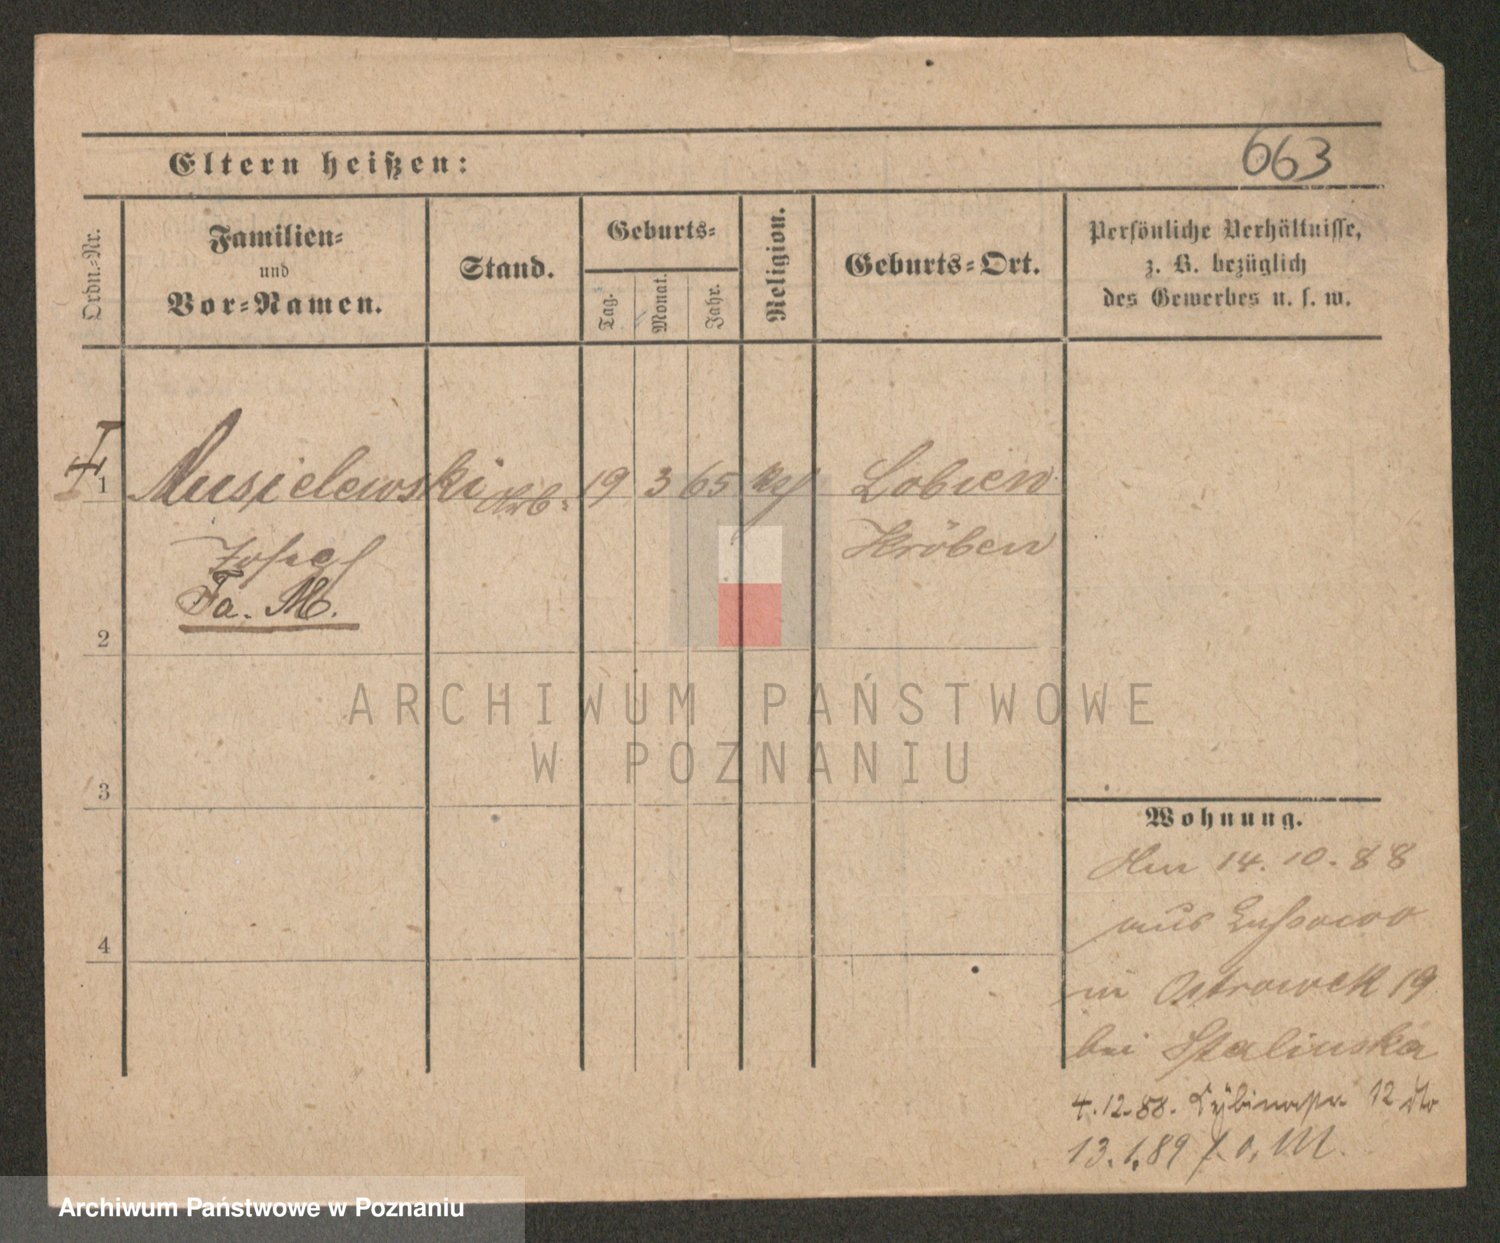 663
Eltern heißen:
Ordn.-Nr.
Familien-
und
Vor-Namen.
Stand.
Geburts-
Tag.
Monat.
Jahr.
Religion.
Geburts-Ort.
Persönliche Verhältnisse,
z. B. bezüglich
des Gewerbes u. s. w.
I
1 Musielewski Arb. 19 3 65 kth Lobiew
Josef Kröben
Fa. M.
2
3
4
Wohnung.
14.10.88
aus Lussowo
in Ostrowek 19
bei Stalinska
4.12.88. 12
13.1.89 M.
ARCHIWUM PAŃSTWOWE
W POZNANIU
Archiwum Państwowe w Poznaniu